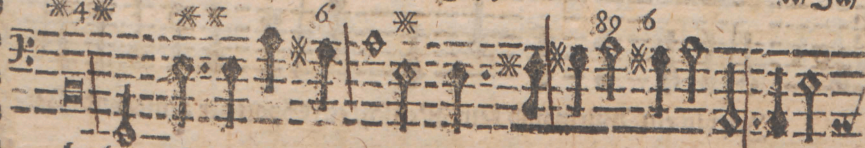 4 6 89 6